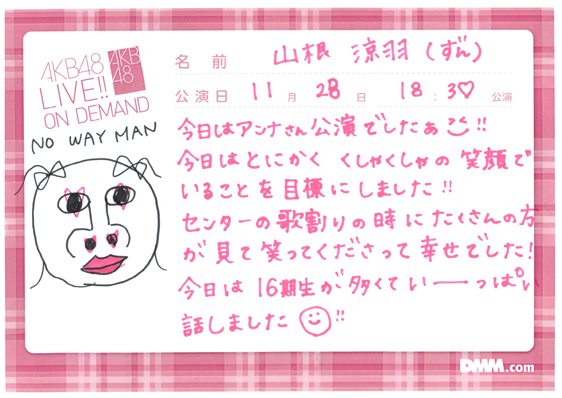 AKB48
LIVE!!
ON DEMAND
AKB
48
NO WAY MAN
名前 山根 涼羽(ずん)
公演日 11月28日 18:30公演
今日はアンナさん公演でしたぁ!!
今日はとにかく くしゃくしゃの笑顔で
いることを目標にしました!!
センターの歌割りの時にたくさんの方
が見て笑ってくださって幸せでした!
今日は16期生が多くていーっぱい
話しました!!
DMM.com